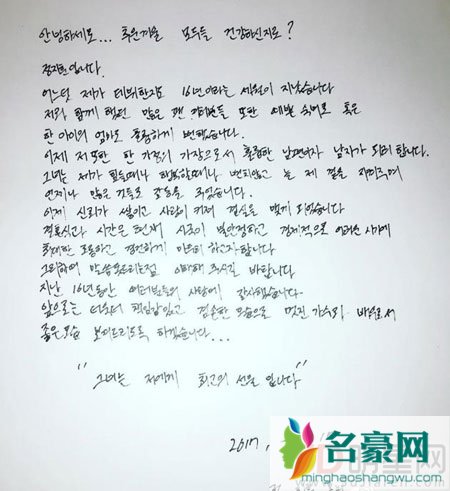 안녕하세요... 추운겨울 모두들 건강하신지요?
장지현입니다.
어느덧 제가 데뷔한지도 16년이라는 세월이 지났습니다
저와 함께 했던 많은 팬 여러분들 또한 예쁜 숙녀로 혹은
한 아이의 엄마로 훌륭하게 변했습니다.
이제 저 또한 한 가정의 가장으로서 훌륭한 남편이자 남자가 되려 합니다.
그녀는 제가 힘들때나 행복할때나 변함없이 늘 제 곁을 지켜주며
언제나 많은것들로 감동을 주었습니다.
이제 신뢰가 쌓이고 사랑이 커져 결실을 맺게 되었습니다
결혼식과 시간은 현재 시국이 불안정하고 경제적으로 어려운 시기에
최대한 조용하고 경건하게 마음을 하고자합니다
그리하여 말씀못드리는점 이해해 주시길 바랍니다
지난 16년동안 여러분들의 사랑에 감사했습니다
앞으로는 더욱더 책임감있고 겸손한 모습으로 멋진 가수와 배우로서
좋은모습 보여드리도록 하겠습니다...
"그녀는 저에게 최고의 선물 입니다"
2017.
名豪网
minghaoshangwu.com